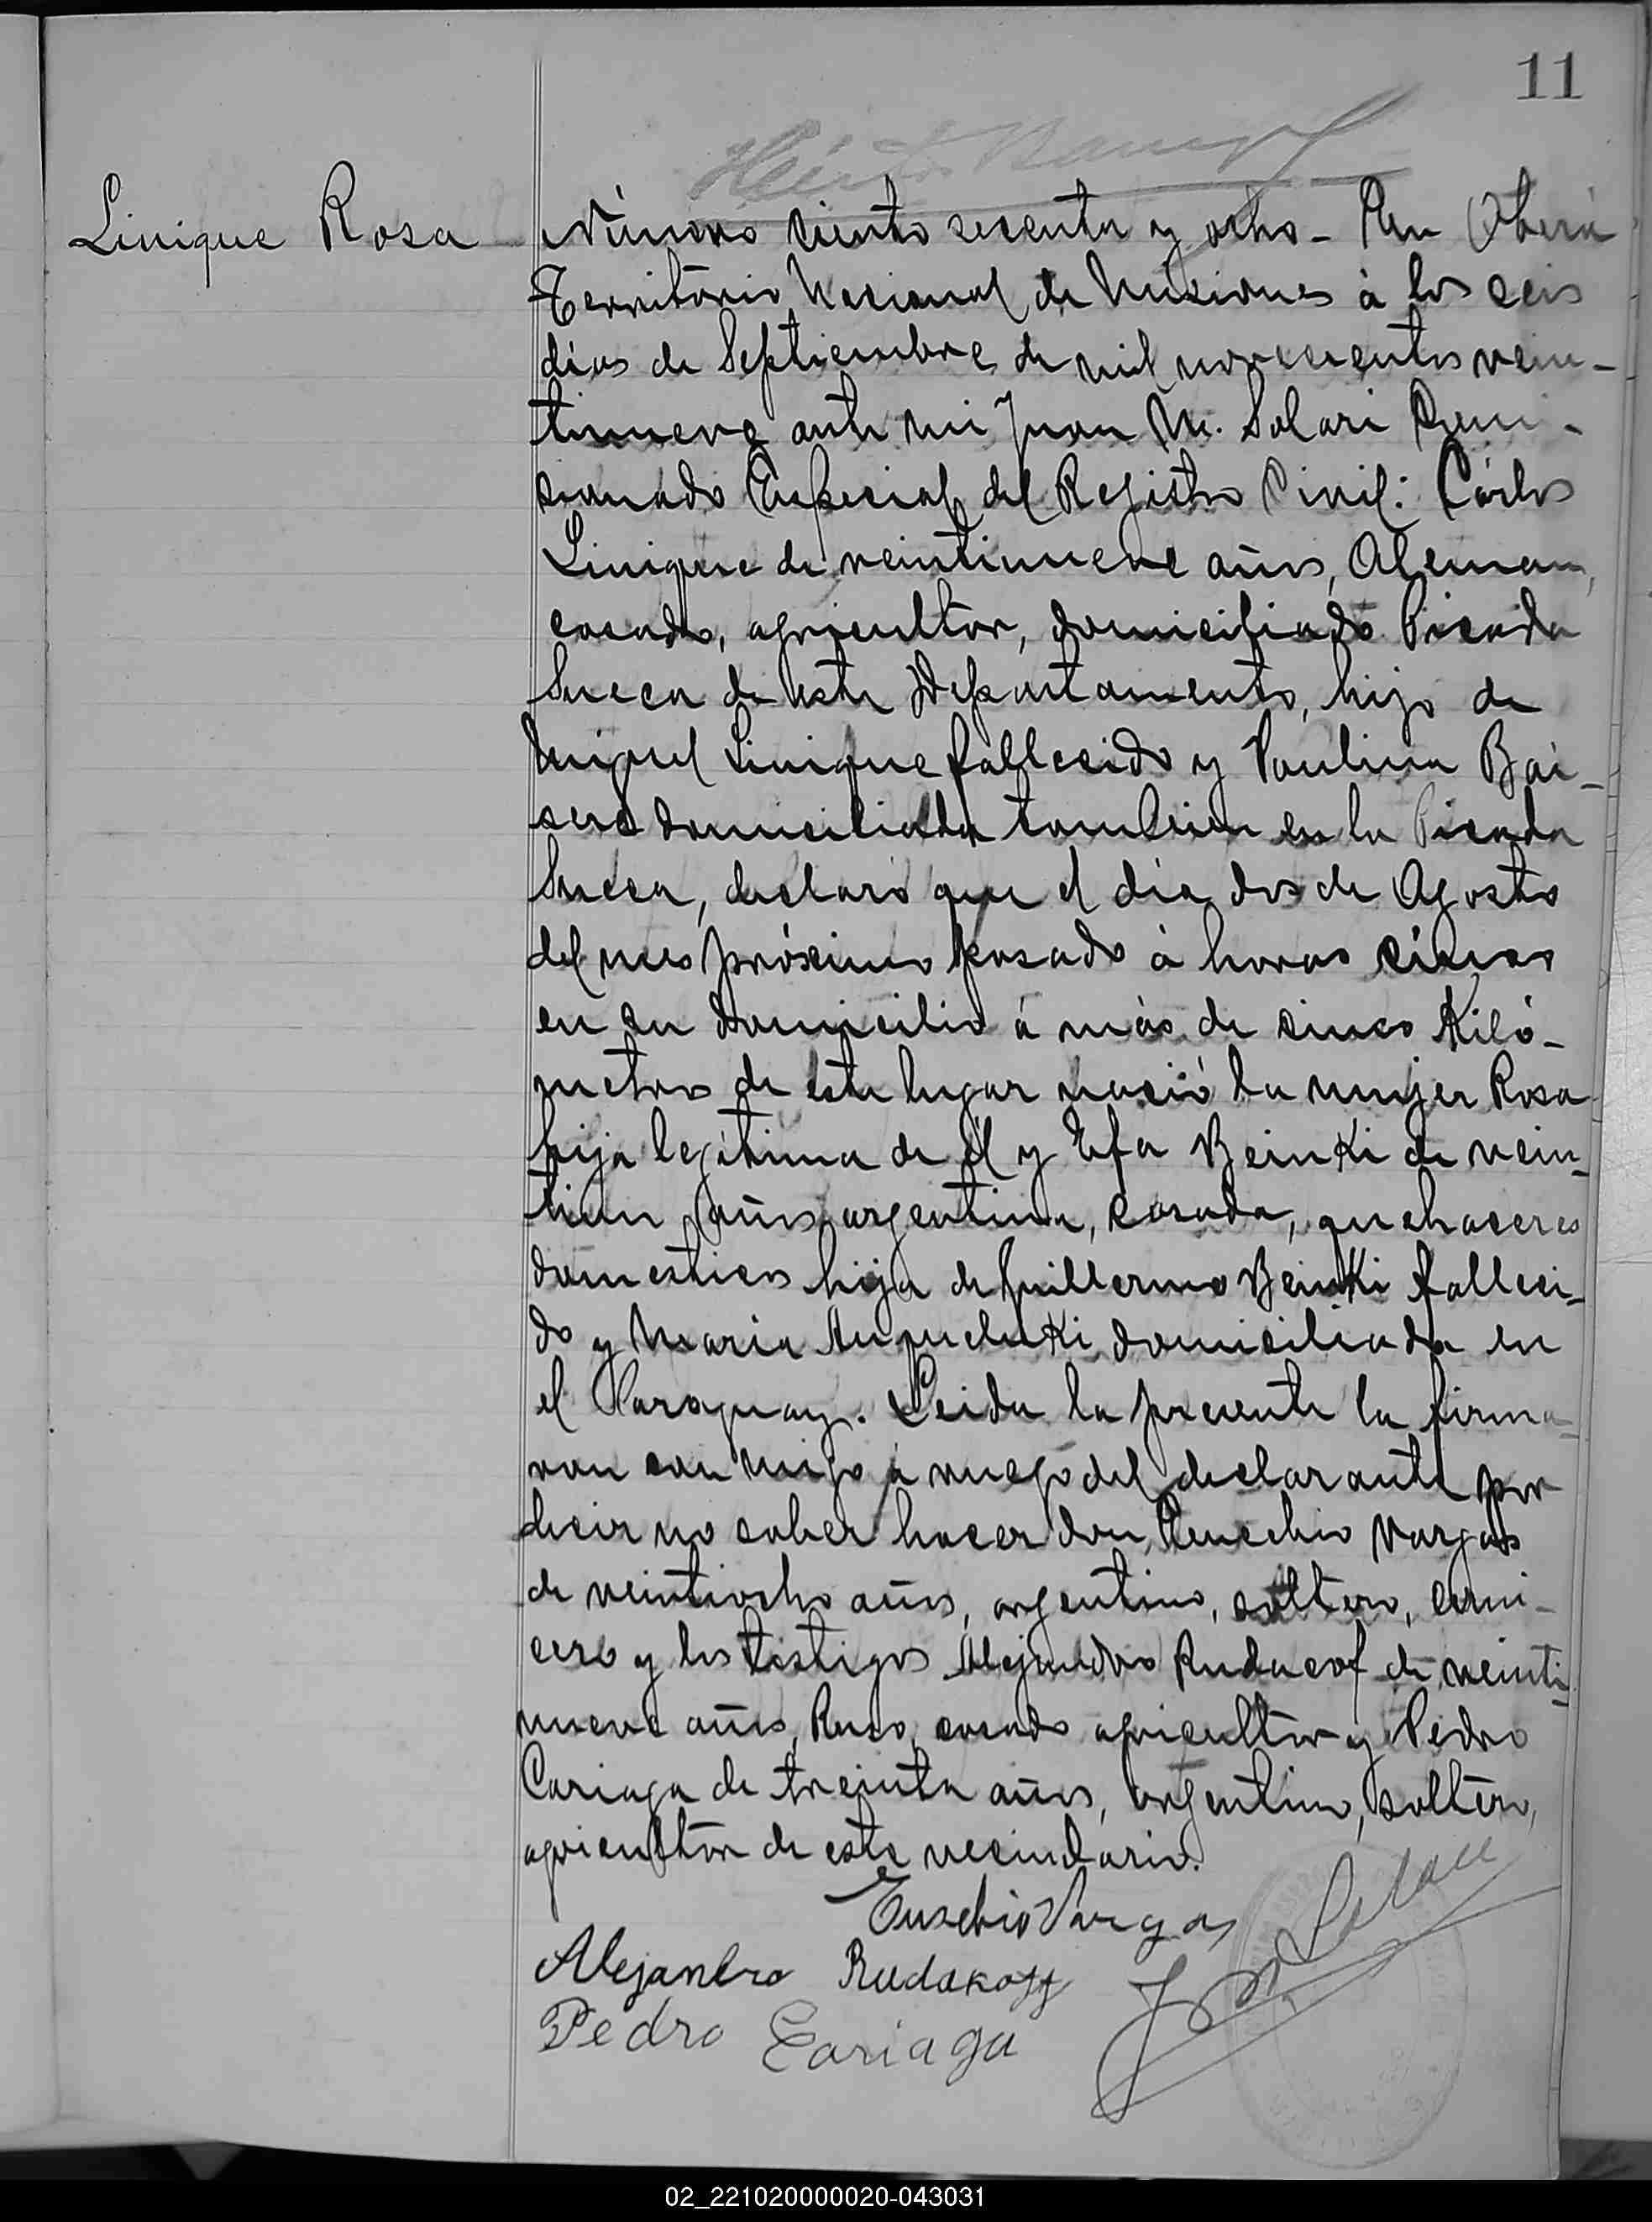 11
Linique Rosa
Número ciento sesenta y ocho - En Oberá
Territorio Nacional de Misiones à los seis
días de Septiembre de mil novecientos vein-
tinueve ante mi Juan M. Solari Comi-
sionado Especial del Registro Civil: Cárlos
Linique de veintinueve años, Aleman,
casado, agricultor, domiciliado Picada
Sueca de este Departamento, hijo de
Miguel Linique fallecido y Paulina Bai-
sers domiciliada tambien en la Picada
Sueca, declaró que el día dos de Agosto
del mes próximo pasado à horas cinco
en su domicilio à más de cinco Kiló-
metros de este lugar nació la mujer Rosa
hija legitima de él y Efa Beinki de vein-
tiun años, argentina, casada, quehaceres
domesticos hija de Guillermo Beinki falleci-
do y Maria domiciliada en
el Paraguay. Leida la presente la firma-
ron con migo à ruego del declarante por
decir no saber hacer don Eusebio Vargas
de veintiocho años, argentino, soltero, carni-
cero y los testigos Alejandro Rudacof de veinti-
nueve años, Ruso, casado agricultor y Pedro
Cariaga de treinta años, argentino, soltero,
agricultor de este vecindario.
Eusebio Vargas
Alejandro Rudakoff
Pedro Cariaga
J M Solari
02_221020000020-043031